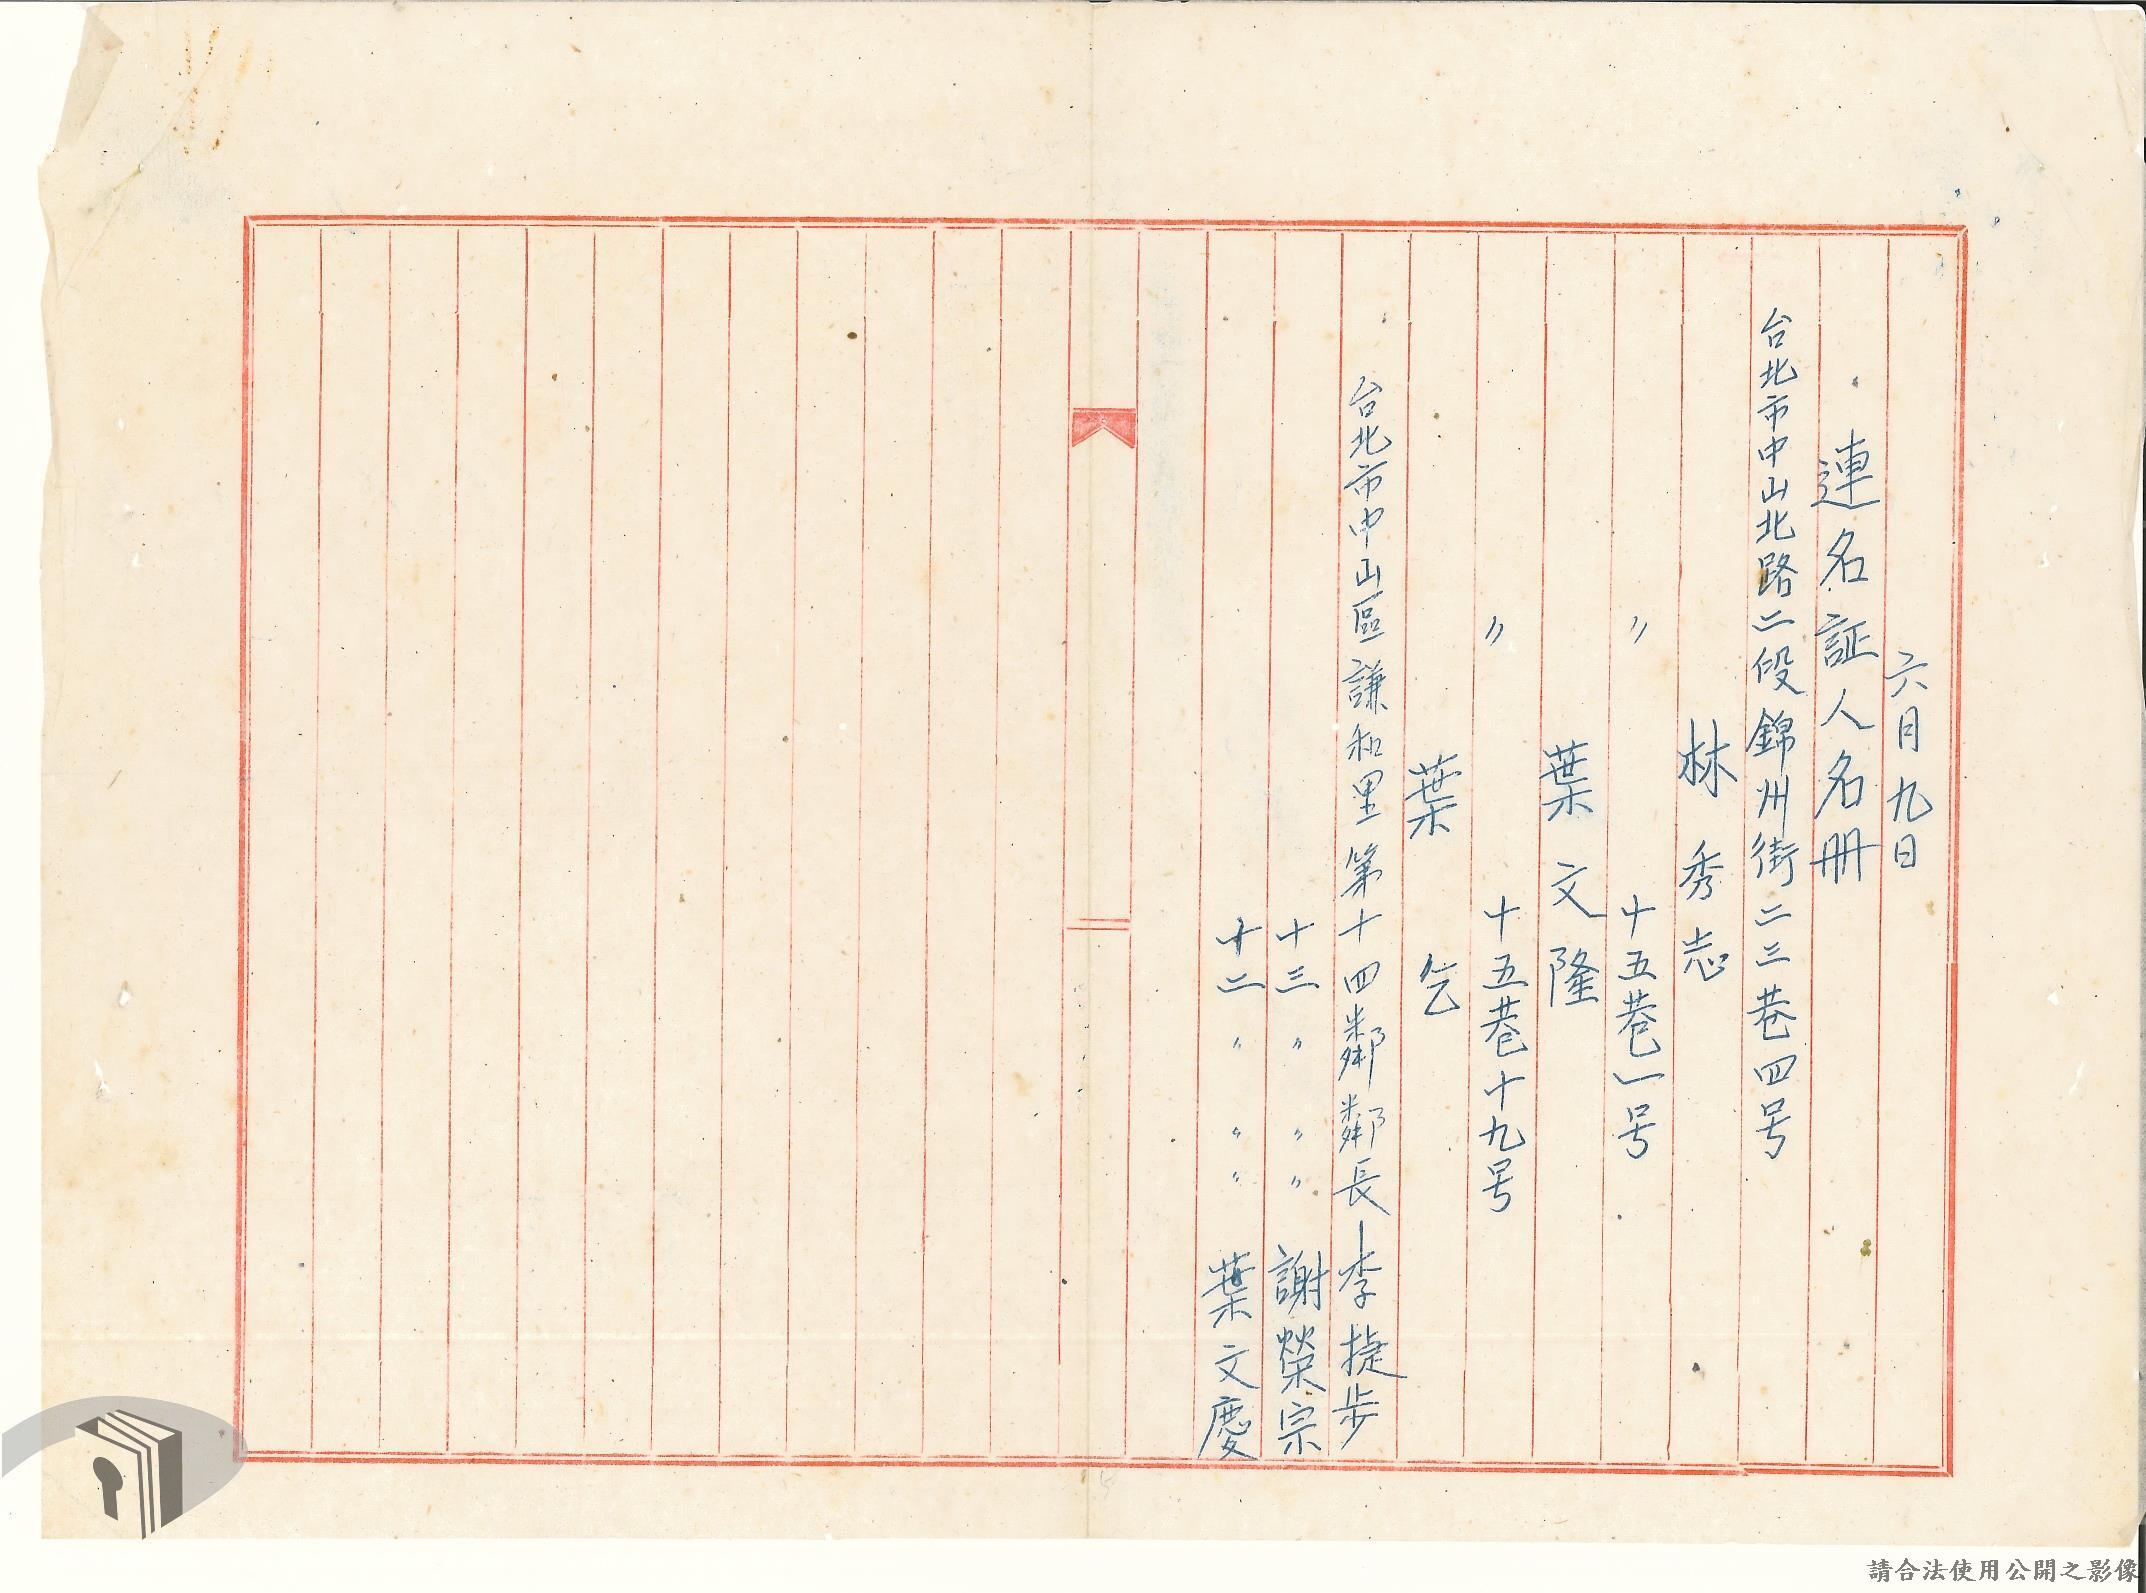 六月九日
連名証人名冊
台北市中山北路二段錦州街二三巷四号
林秀志
〃 十五巷一号
葉文隆
〃 十五巷十九号
葉乞
台北市中山區謙和里第十四鄰鄰長 李捷步
十三〃〃〃 謝榮宗
十二〃〃〃 葉文慶
請合法使用公開之影像